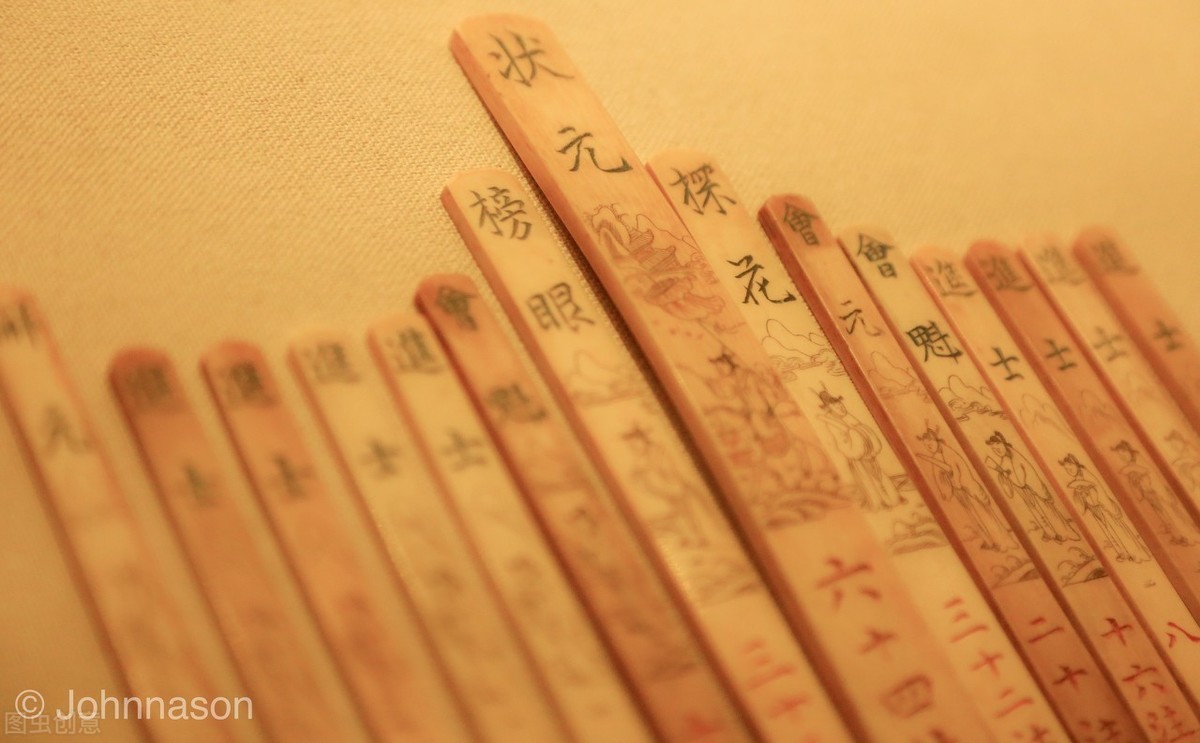 元
進士
進士
進士
進士
會魁
榜眼 三十
状元 六十四
探花 三十二
會元 二十
會魁 十六注
進士 八
進士
進士
進士
© Johnnason
图虫创意